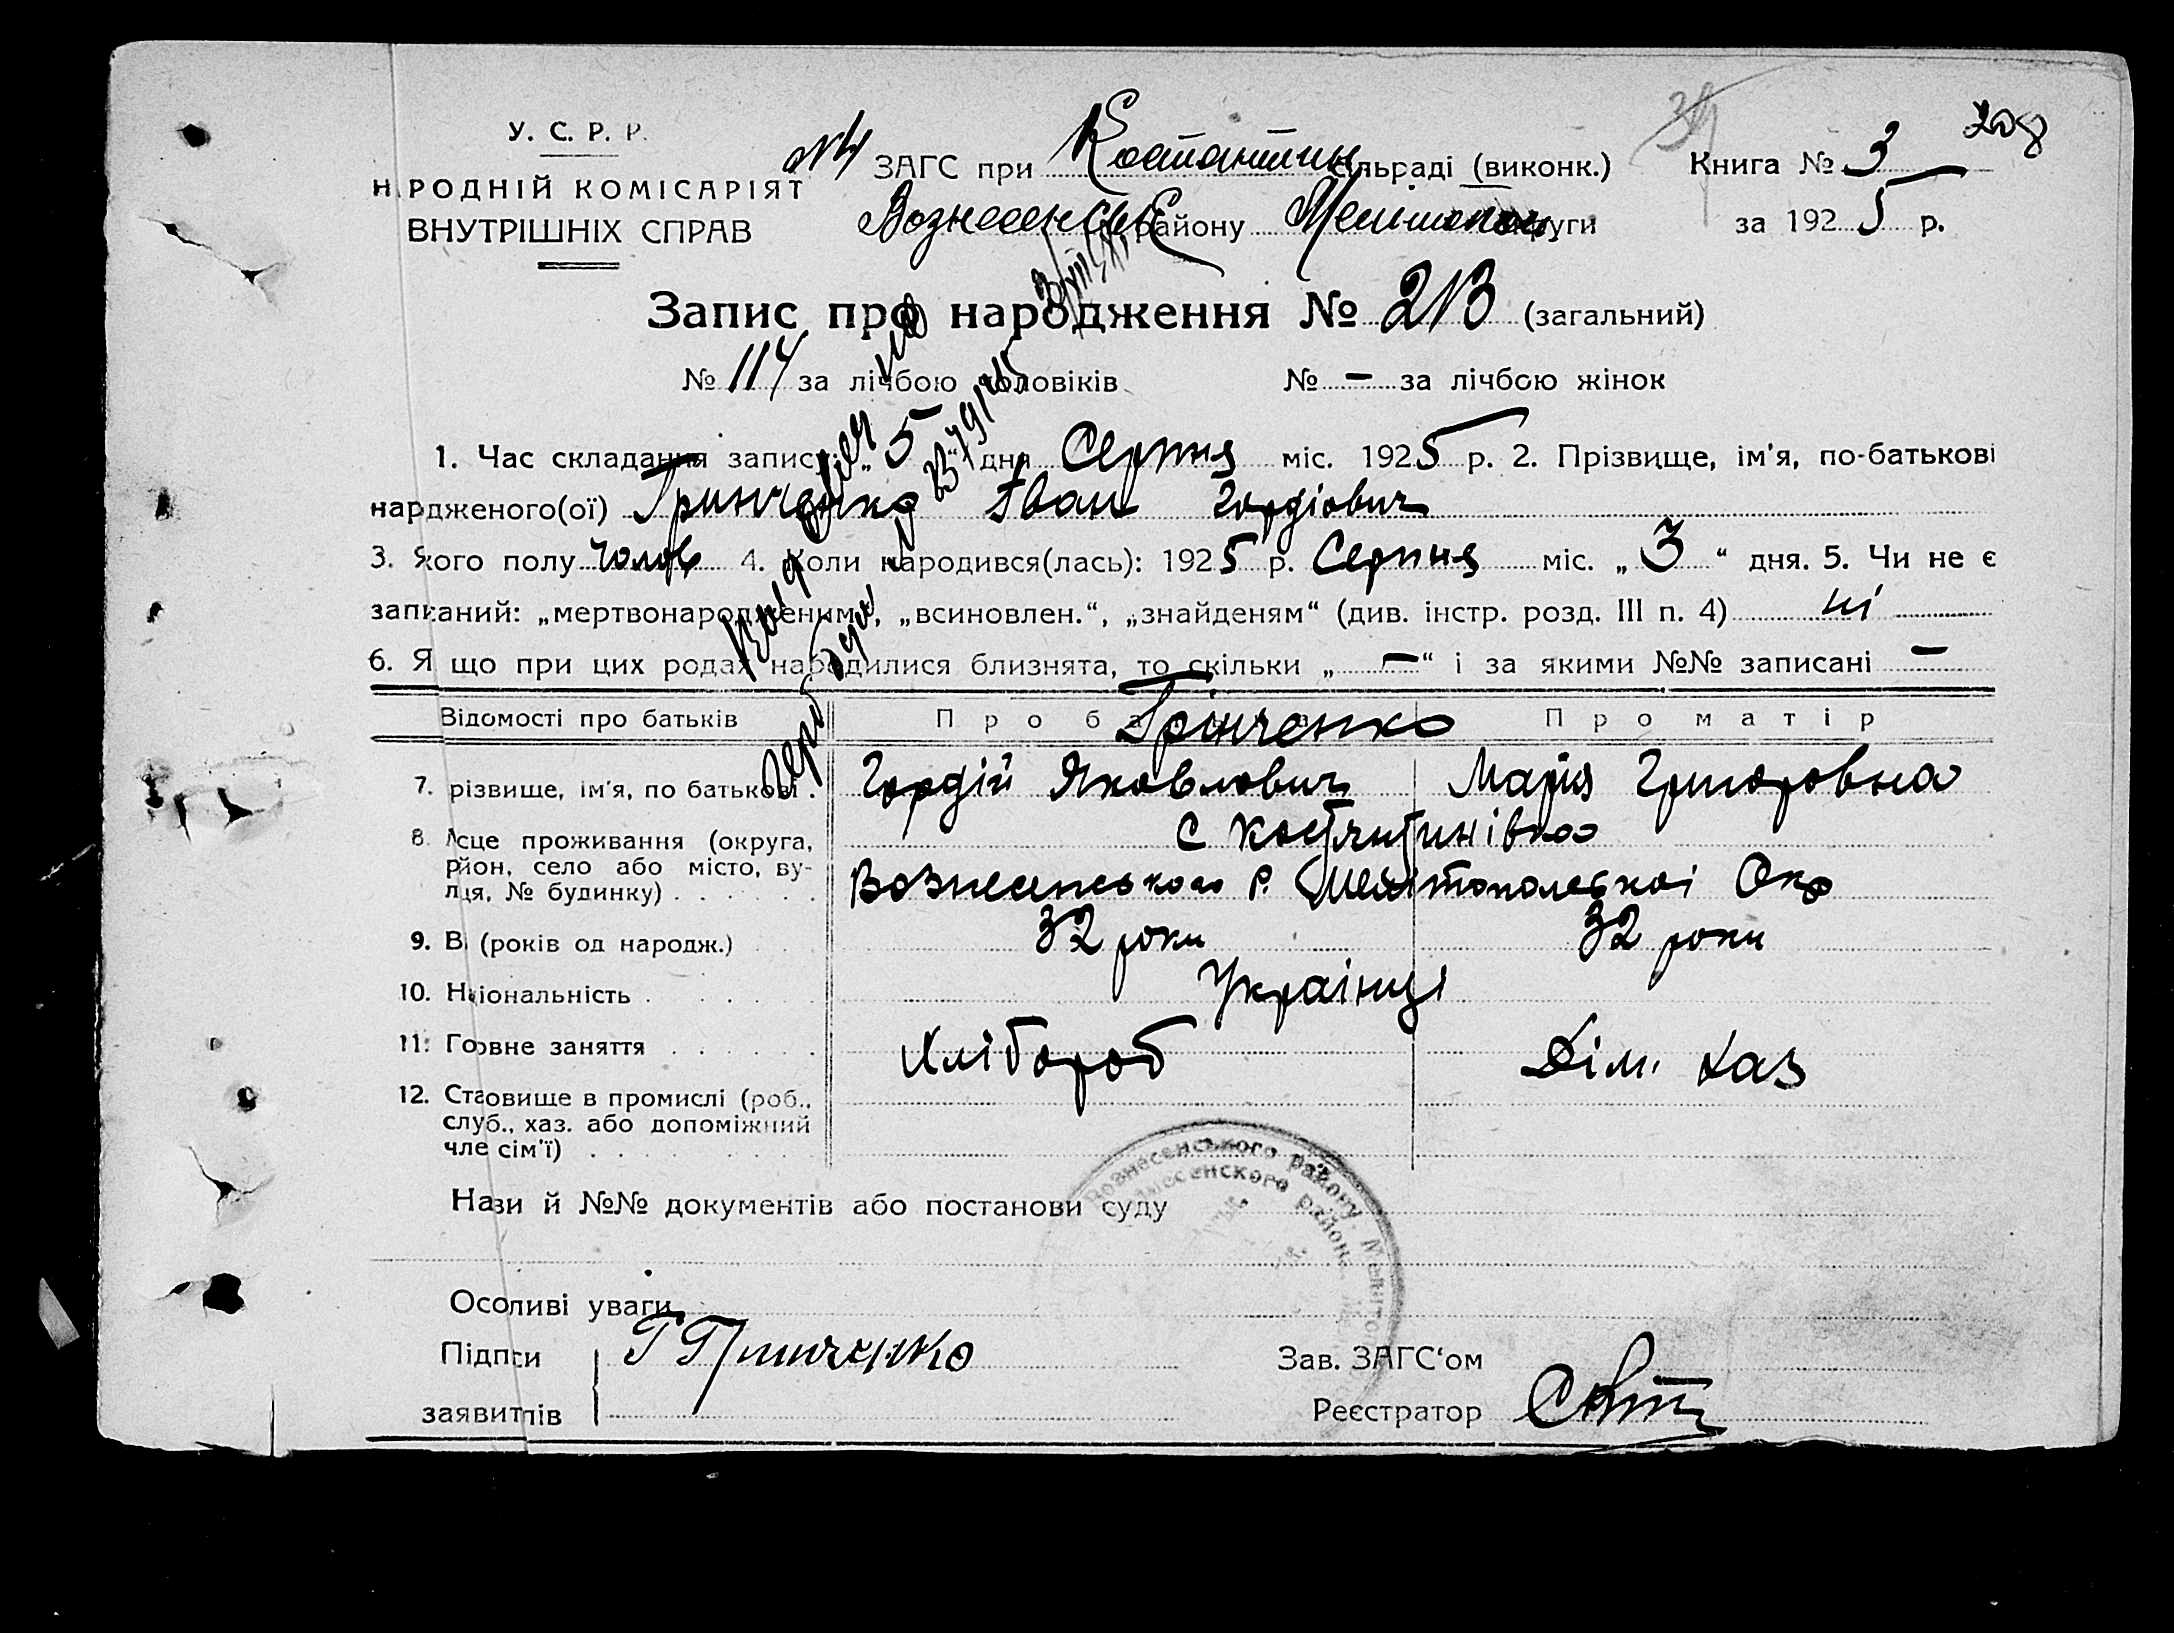 208
У. С. Р. Р.
ЗАГС при Костантин сільраді (виконк.) Книга № 3
Н РОДНІЙ КОМІСАРІЯТ
ВНУТРІШНІХ СПРАВ
Вознесенськ району Мелитопол округи за 1925 р.
Запис про народження № 213 (загальний)
№ 114 за лічбою чоловіків № — за лічбою жінок
1. Час складання запису: „5“ дня Серпня міс. 1925 р. 2. Прізвище, ім'я, по-батькові
нардженого(ої) Гринченко Іван Гордіович
3. Якого полу чолов 4. Коли народився(лась): 1925 р. Серпня міс. „3“ дня. 5. Чи не є
записаний: „мертвонародженим“, „всиновлен.“, „знайденям“ (див. інстр. розд. III п. 4) ні
6. Я що при цих родах народилися близнята, то скільки „—“ і за якими №№ записані —
Відомості про батьків Про ба Про матір
Грінченко
7. різвище, ім'я, по батькові . Гордій Яковлович Марія Григоровна
8. сце проживання (округа,
район, село або місто, ву-
лця, № будинку) . . . . . .
с Костянтинівка
Вознесенського р. Мелітопольскоі Окр
9. В (років од народж.) 32 роки 32 роки
10. Національність . . . . . Українці
11. Головне заняття . . . . . Хлібороб Дім. хаз
12. Становище в промислі (роб.,
слуб., хаз. або допоміжний
чле сім'ї) . . . . . .
Вознесенського району, Мелито
Назви й №№ документів або постанови суду
Особливі уваги
Підписи Г Гринченко Зав. ЗАГС'ом
заявителів Реєстратор